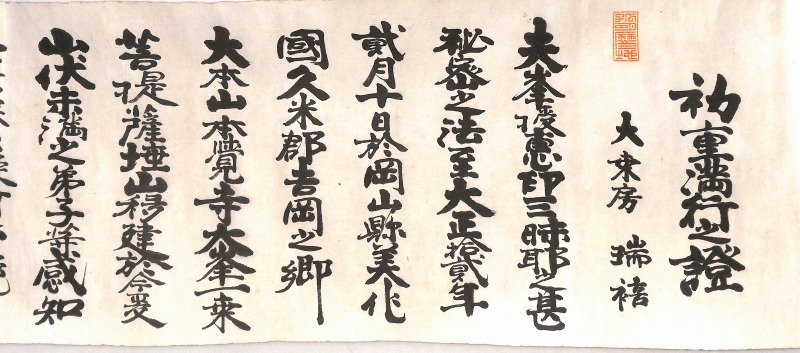 初重満行之證
大乗房 瑞禧
夫峯受恵印三昧耶之甚
秘密之法至大正拾貳年
貳月十日於岡山縣美作
國久米郡吉岡之郷
大本山本覺寺大峯一乗
菩提薩埵山移建於今爰
山伏未満之弟子等感知